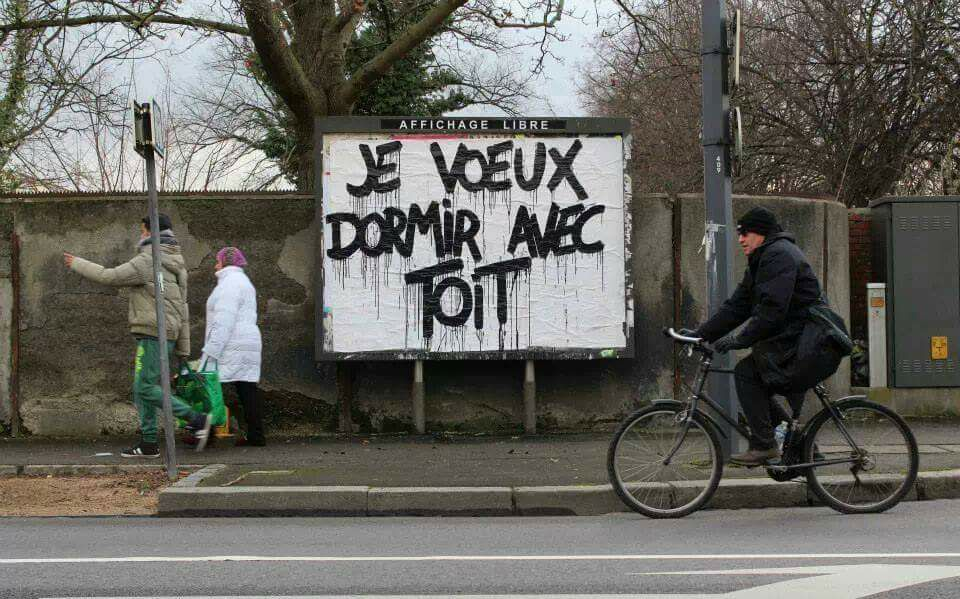 AFFICHAGE LIBRE
JE VOEUX
DORMIR AVEC
TOIT
409